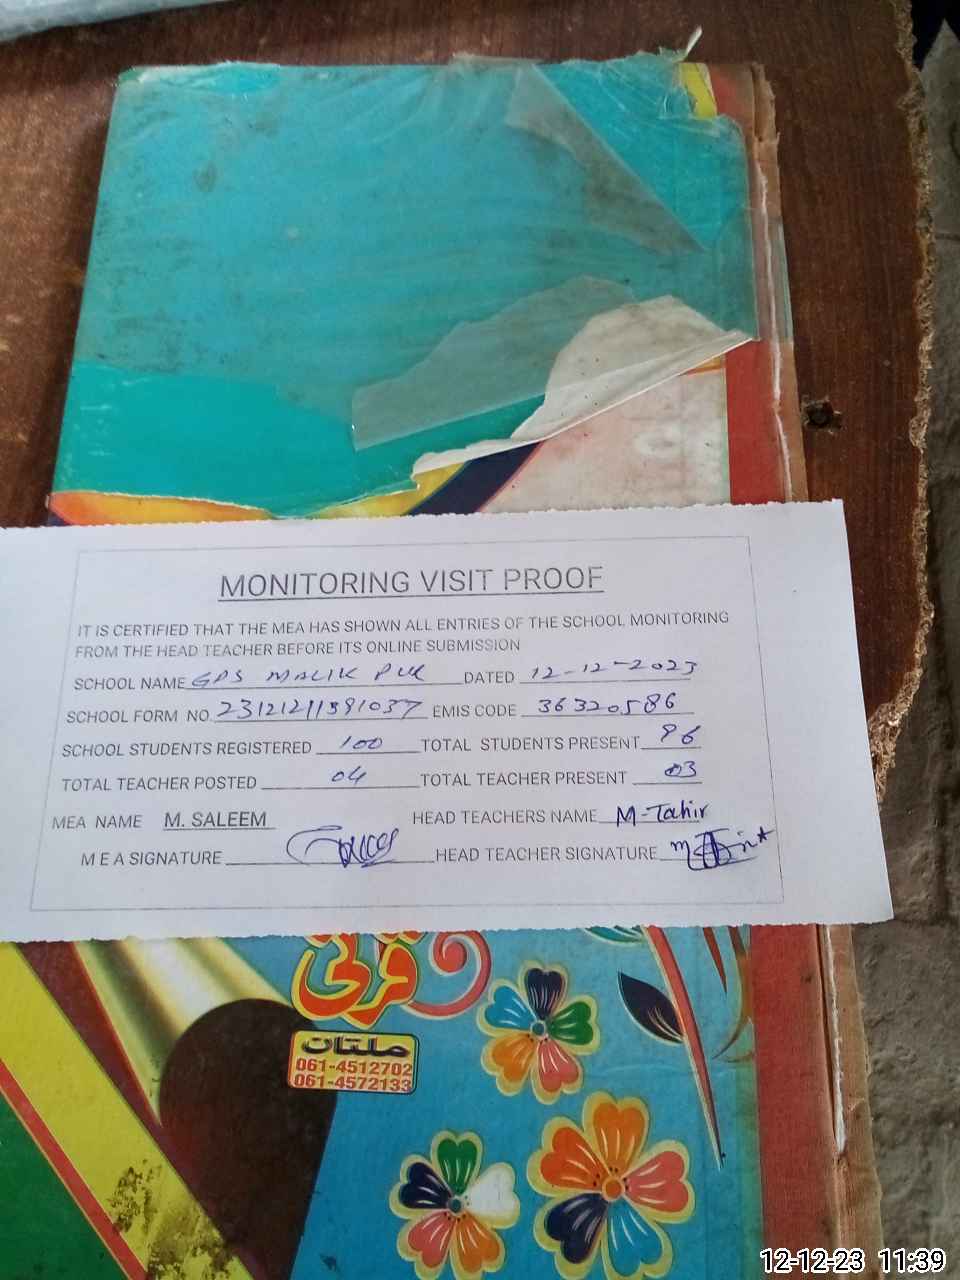 MONITORING VISIT PROOF
IT IS CERTIFIED THAT THE MEA HAS SHOWN ALL ENTRIES OF THE SCHOOL MONITORING
FROM THE HEAD TEACHER BEFORE ITS ONLINE SUBMISSION
SCHOOL NAME GPS MALIK PUR DATED 12-12-2023
SCHOOL FORM NO. 23121211391037 EMIS CODE 36320586
SCHOOL STUDENTS REGISTERED 100 TOTAL STUDENTS PRESENT 86
TOTAL TEACHER POSTED 04 TOTAL TEACHER PRESENT 03
MEA NAME M. SALEEM HEAD TEACHERS NAME M-Tahir
M E A SIGNATURE HEAD TEACHER SIGNATURE
ملتان
061-4512702
061-4572133
12-12-23 11:39